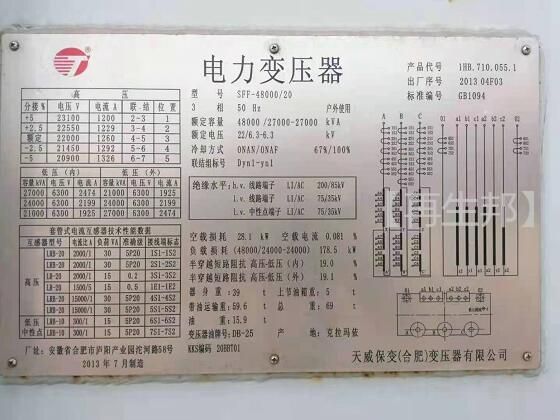 电力变压器
产品代号 1HB.710.055.1
出厂序号 2013 04F03
标准编号 GB1094
型号 SFF-48000/20
3 相 50 Hz 户外使用
额定容量 48000 /27000-27000 kVA
额定电压 22/6.3-6.3 kV
冷却方式 ONAN/ONAF 67%/100%
联结组标号 Dyn1-yn1
绝缘水平: h.v. 线路端子 LI/AC 200/85kV
l.v. 线路端子 LI/AC 75/35kV
l.v. 中性点端子 LI/AC 75/35kV
空载损耗 28.1 kW 空载电流 0.081 %
负载损耗 (48000/24000-24000) 178.5 kW
半穿越短路阻抗 高压-低压(内) 19.0 %
半穿越短路阻抗 高压-低压(外) 19.1 %
器身重 39 t 上节油箱重 5 t
带油运输重 59.6 t 总重 69 t
油重 15.9 t
变压器油牌号 DB-25 产地: 克拉玛依
KKS编码 20BBT01
高压
分接% 电压 V 电流 A 联结 位置
+5 23100 1200 2-3 1
+2.5 22550 1229 3-4 2
额定 22000 1260 4-1 3
-2.5 21450 1292 5-6 4
-5 20900 1326 6-7 5
低压(内) 低压(外)
容量kVA 电压V 电流A 容量kVA 电压V 电流A
27000 6300 2474 21000 6300 1925
24000 6300 2199 24000 6300 2199
21000 6300 1925 27000 6300 2474
套管式电流互感器技术性能数据
互感器型号 电流比A 负荷VA 准确级 接线端标志
高压
LRB-20 2000/1 30 5P20 1S1-1S2
LRB-20 2000/1 30 5P20 2S1-2S2
LR-20 2000/1 15 0.2 3S1-3S2
LR-20 1500/5 15 0.5 1E1-1E2
LRB-20 15000/1 30 5P20 4S1-4S2
LRB-20 15000/1 30 5P20 5S1-5S2
低压 LRB-10 300/1 15 5P20 6S1-6S2
中性点 LRB-10 300/1 15 5P20 7S1-7S2
厂址: 安徽省合肥市庐阳产业园沱河路58号
2013 年 7 月制造
天威保变(合肥)变压器有限公司
【再生邦】